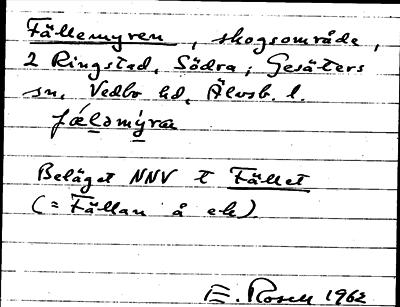 Fällemyren, skogsområde,
2 Ringstad, Södra; Gesäters
sn, Vedbo hd, Älvsb. l.
fæ̀ləmýra
Beläget NNV t Fället
(= Fällan å ek)
E. Rosell 1962